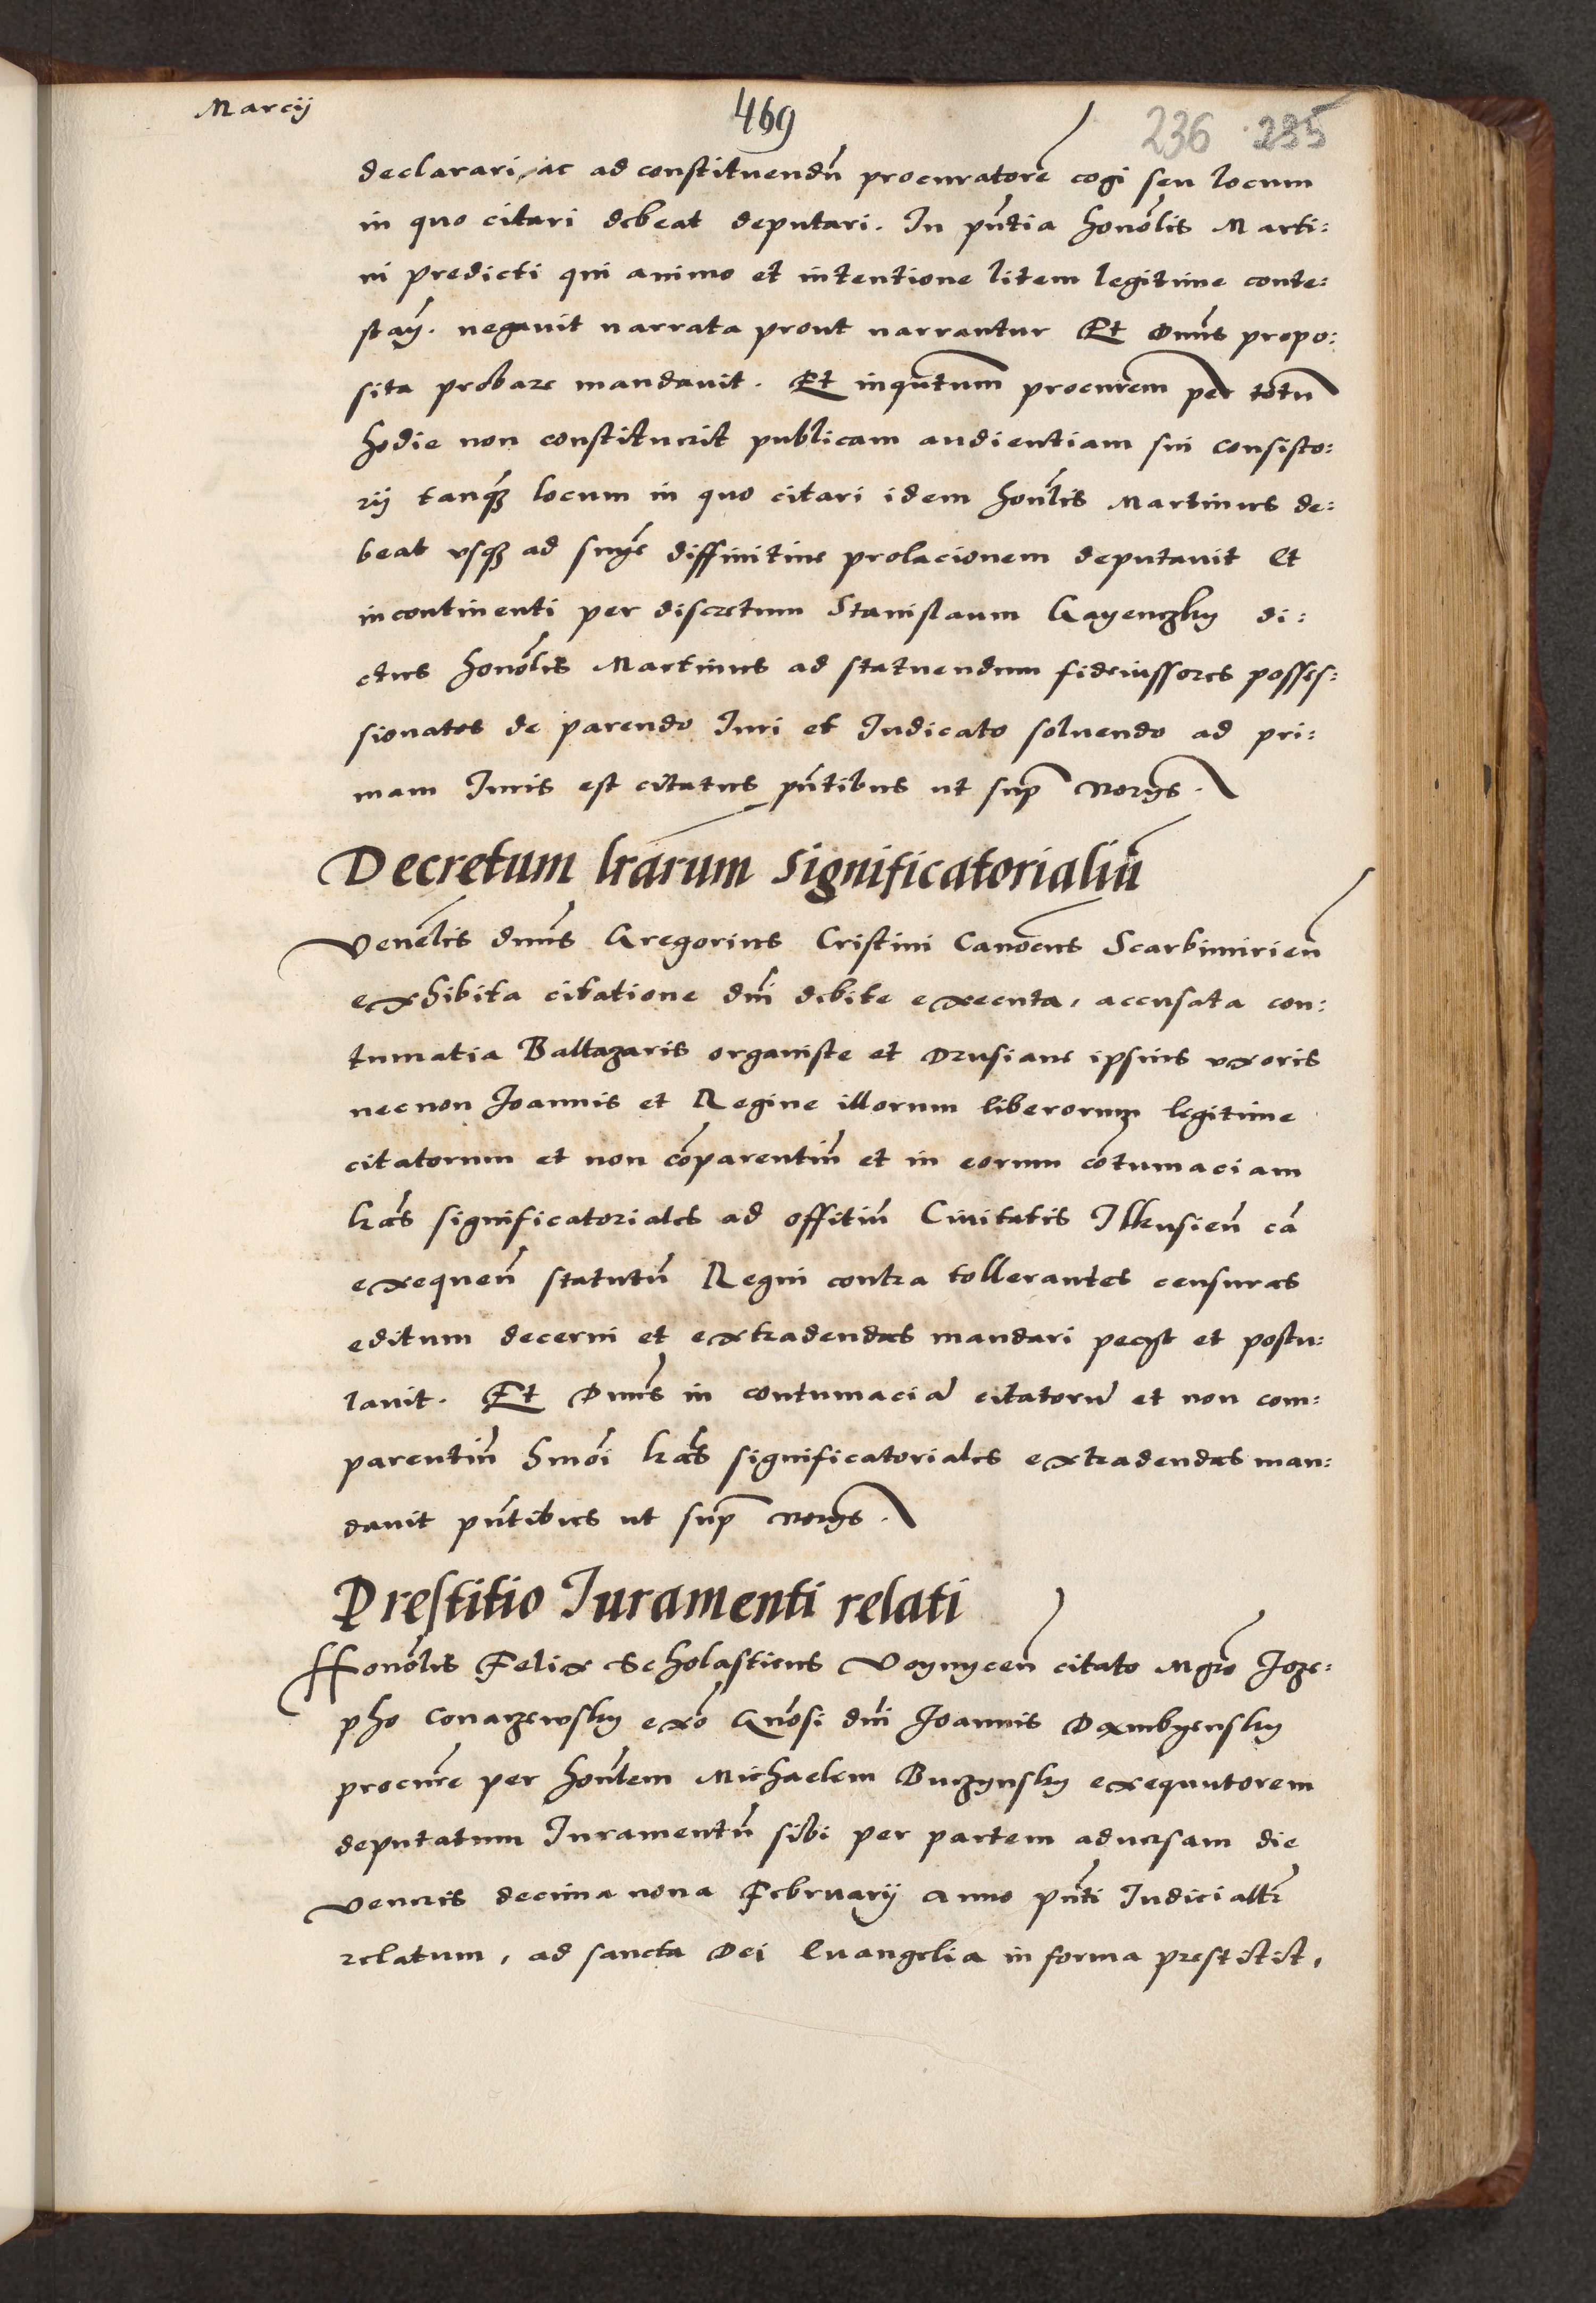 Marcij
469
236 235
declarari, ac ad constituendũ procuratorẽ cogi seu locum
in quo citari debeat deputari. In pñtia honõlis Marti:
ni predicti qui animo et intentione litem legitime conte:
negauit narrata prout narrantur Et Dnũs propo:
sita probare mandauit. Et inqũtum procurem̃ per totũ
hodie non constituerit publicam audientiam sui consisto:
rij tanq̃ locum in quo citari idem hoñlis Martinus de:
beat vsq̃ ad snỹe diffinitiue prolacionem deputauit Et
incontinenti per discretum Stanislaum Gayenczky di:
ctus honõlis Martinus ad statuendum fideiussores posses:
sionatos de parendo Iuri et Iudicato soluendo ad pri:
mam Iuris est citatus pñtibus ut sup̃ Norijs.
Decretum lr̃arum significatorialiũ
Venẽlis dnũs Gregorius Cristini Canõcus Scarbimirieñ
exhibita citatione dñi debite executa, accusata con:
tumatia Baltazaris organiste et Drusiane ipsius vxoris
necnon Joannis et Regine illorum liberorum legitime
citatorum et non cõparentiũ et in eorum cõtumaciam
lrãs significatoriales ad offitiũ Ciuitatis Ilkusieñ cã
exequeñ statutũ Regni contra tollerantes censuras
editum decerni et extradendas mandari pecijt et postu:
lauit. Et Dnũs in contumaciã citatorũ et non com:
parentiũ hmõi lrãs significatoriales extradendas man:
dauit pñtibus ut sup̃ Norijs.
Prestitio Iuramenti relati
Honõlis Felix Scholasticus Voynyceñ citato Mgrõ Joze:
pho Conarzewsky exõ Gnõsi dñi Joannis Dambyensky
procurẽ per hoñlem Michaelem Buczynsky exequutorem
deputatum Iuramentũ sibi per partem aduersam die
Veneris decima nona Februarij Anno pñti Iudicialtr̃
relatum, ad sancta Dei Euangelia in forma prestitit,